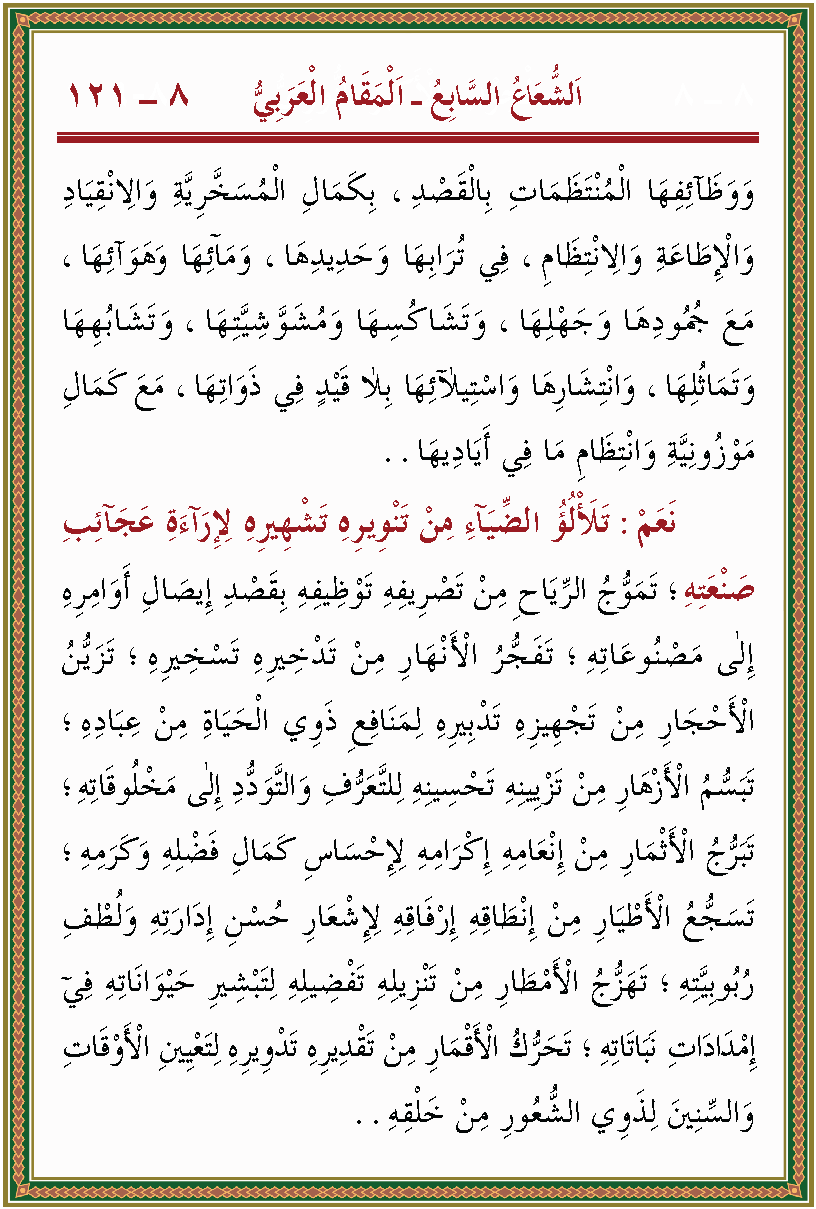 اَلشُّعَاعُ السَّابِعُ ـ اَلْمَقَامُ الْعَرَبِيُّ ٨ ـ ١٢١
وَوَظَآئِفِهَا الْمُنْتَظَمَاتِ بِالْقَصْدِ ، بِكَمَالِ الْمُسَخَّرِيَّةِ وَالِانْقِيَادِ
وَالْإِطَاعَةِ وَالِانْتِظَامِ ، فِي تُرَابِهَا وَحَدِيدِهَا ، وَمَآئِهَا وَهَوَآئِهَا ،
مَعَ جُمُودِهَا وَجَهْلِهَا ، وَتَشَاكُسِهَا وَمُشَوَّشِيَّتِهَا ، وَتَشَابُهِهَا
وَتَمَاثُلِهَا ، وَانْتِشَارِهَا وَاسْتِيلَآئِهَا بِلَا قَيْدٍ فِي ذَوَاتِهَا ، مَعَ كَمَالِ
مَوْزُونِيَّةِ وَانْتِظَامِ مَا فِي أَيَادِيهَا . .
نَعَمْ : تَلَأْلُؤُ الضِّيَآءِ مِنْ تَنْوِيرِهِ تَشْهِيرِهِ لِإِرَآءَةِ عَجَآئِبِ
صَنْعَتِهِ ؛ تَمَوُّجُ الرِّيَاحِ مِنْ تَصْرِيفِهِ تَوْظِيفِهِ بِقَصْدِ إِيصَالِ أَوَامِرِهِ
إِلٰى مَصْنُوعَاتِهِ ؛ تَفَجُّرُ الْأَنْهَارِ مِنْ تَدْخِيرِهِ تَسْخِيرِهِ ؛ تَزَيُّنُ
الْأَحْجَارِ مِنْ تَجْهِيزِهِ تَدْبِيرِهِ لِمَنَافِعِ ذَوِي الْحَيَاةِ مِنْ عِبَادِهِ ؛
تَبَسُّمُ الْأَزْهَارِ مِنْ تَزْيِينِهِ تَحْسِينِهِ لِلتَّعَرُّفِ وَالتَّوَدُّدِ إِلٰى مَخْلُوقَاتِهِ ؛
تَبَرُّجُ الْأَثْمَارِ مِنْ إِنْعَامِهِ إِكْرَامِهِ لِإِحْسَاسِ كَمَالِ فَضْلِهِ وَكَرَمِهِ ؛
تَسَجُّعُ الْأَطْيَارِ مِنْ إِنْطَاقِهِ إِرْفَاقِهِ لِإِشْعَارِ حُسْنِ إِدَارَتِهِ وَلُطْفِ
رُبُوبِيَّتِهِ ؛ تَهَزُّجُ الْأَمْطَارِ مِنْ تَنْزِيلِهِ تَفْضِيلِهِ لِتَبْشِيرِ حَيْوَانَاتِهِ فِيٓ
إِمْدَادَاتِ نَبَاتَاتِهِ ؛ تَحَرُّكُ الْأَقْمَارِ مِنْ تَقْدِيرِهِ تَدْوِيرِهِ لِتَعْيِينِ الْأَوْقَاتِ
وَالسِّنِينَ لِذَوِي الشُّعُورِ مِنْ خَلْقِهِ . .